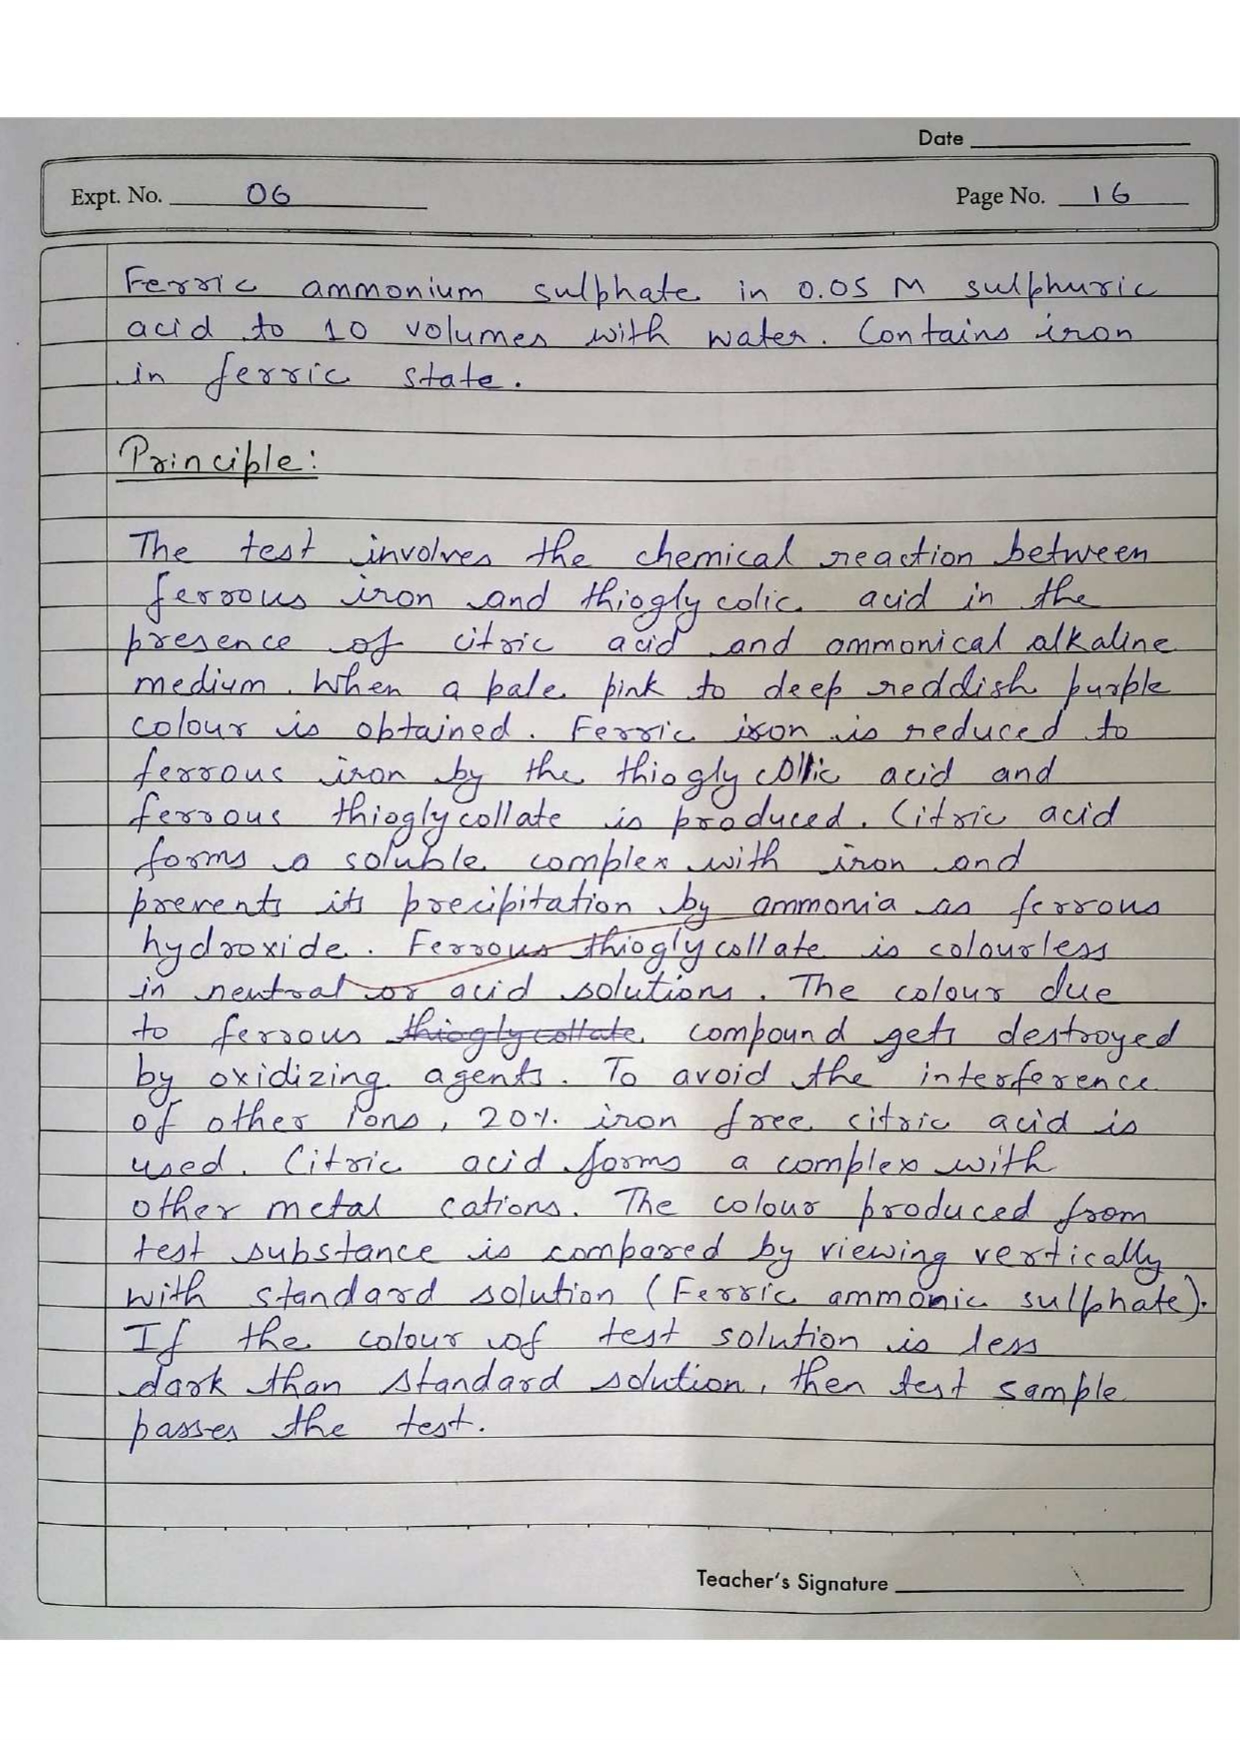 Date
Expt. No. 06
Page No. 16
Ferric ammonium sulphate in 0.05 M sulphuric
acid to 10 volumes with water. Contains iron
in ferric state.
Principle:
The test involves the chemical reaction between
ferrous iron and thioglycolic acid in the
presence of citric acid and ammonical alkaline
medium. When a pale pink to deep reddish purple
colour is obtained. Ferric iron is reduced to
ferrous iron by the thioglycollic acid and
ferrous thioglycollate is produced. Citric acid
forms a soluble complex with iron and
prevents its precipitation by ammonia as ferrous
hydroxide. Ferrous thioglycollate is colourless
in neutral or acid solutions. The colour due
to ferrous thioglycollate compound gets destroyed
by oxidizing agents. To avoid the interference
of other ions, 20% iron free citric acid is
used. Citric acid forms a complex with
other metal cations. The colour produced from
test substance is compared by viewing vertically
with standard solution (Ferric ammonic sulphate).
If the colour of test solution is less
dark than standard solution, then test sample
passes the test.
Teacher's Signature